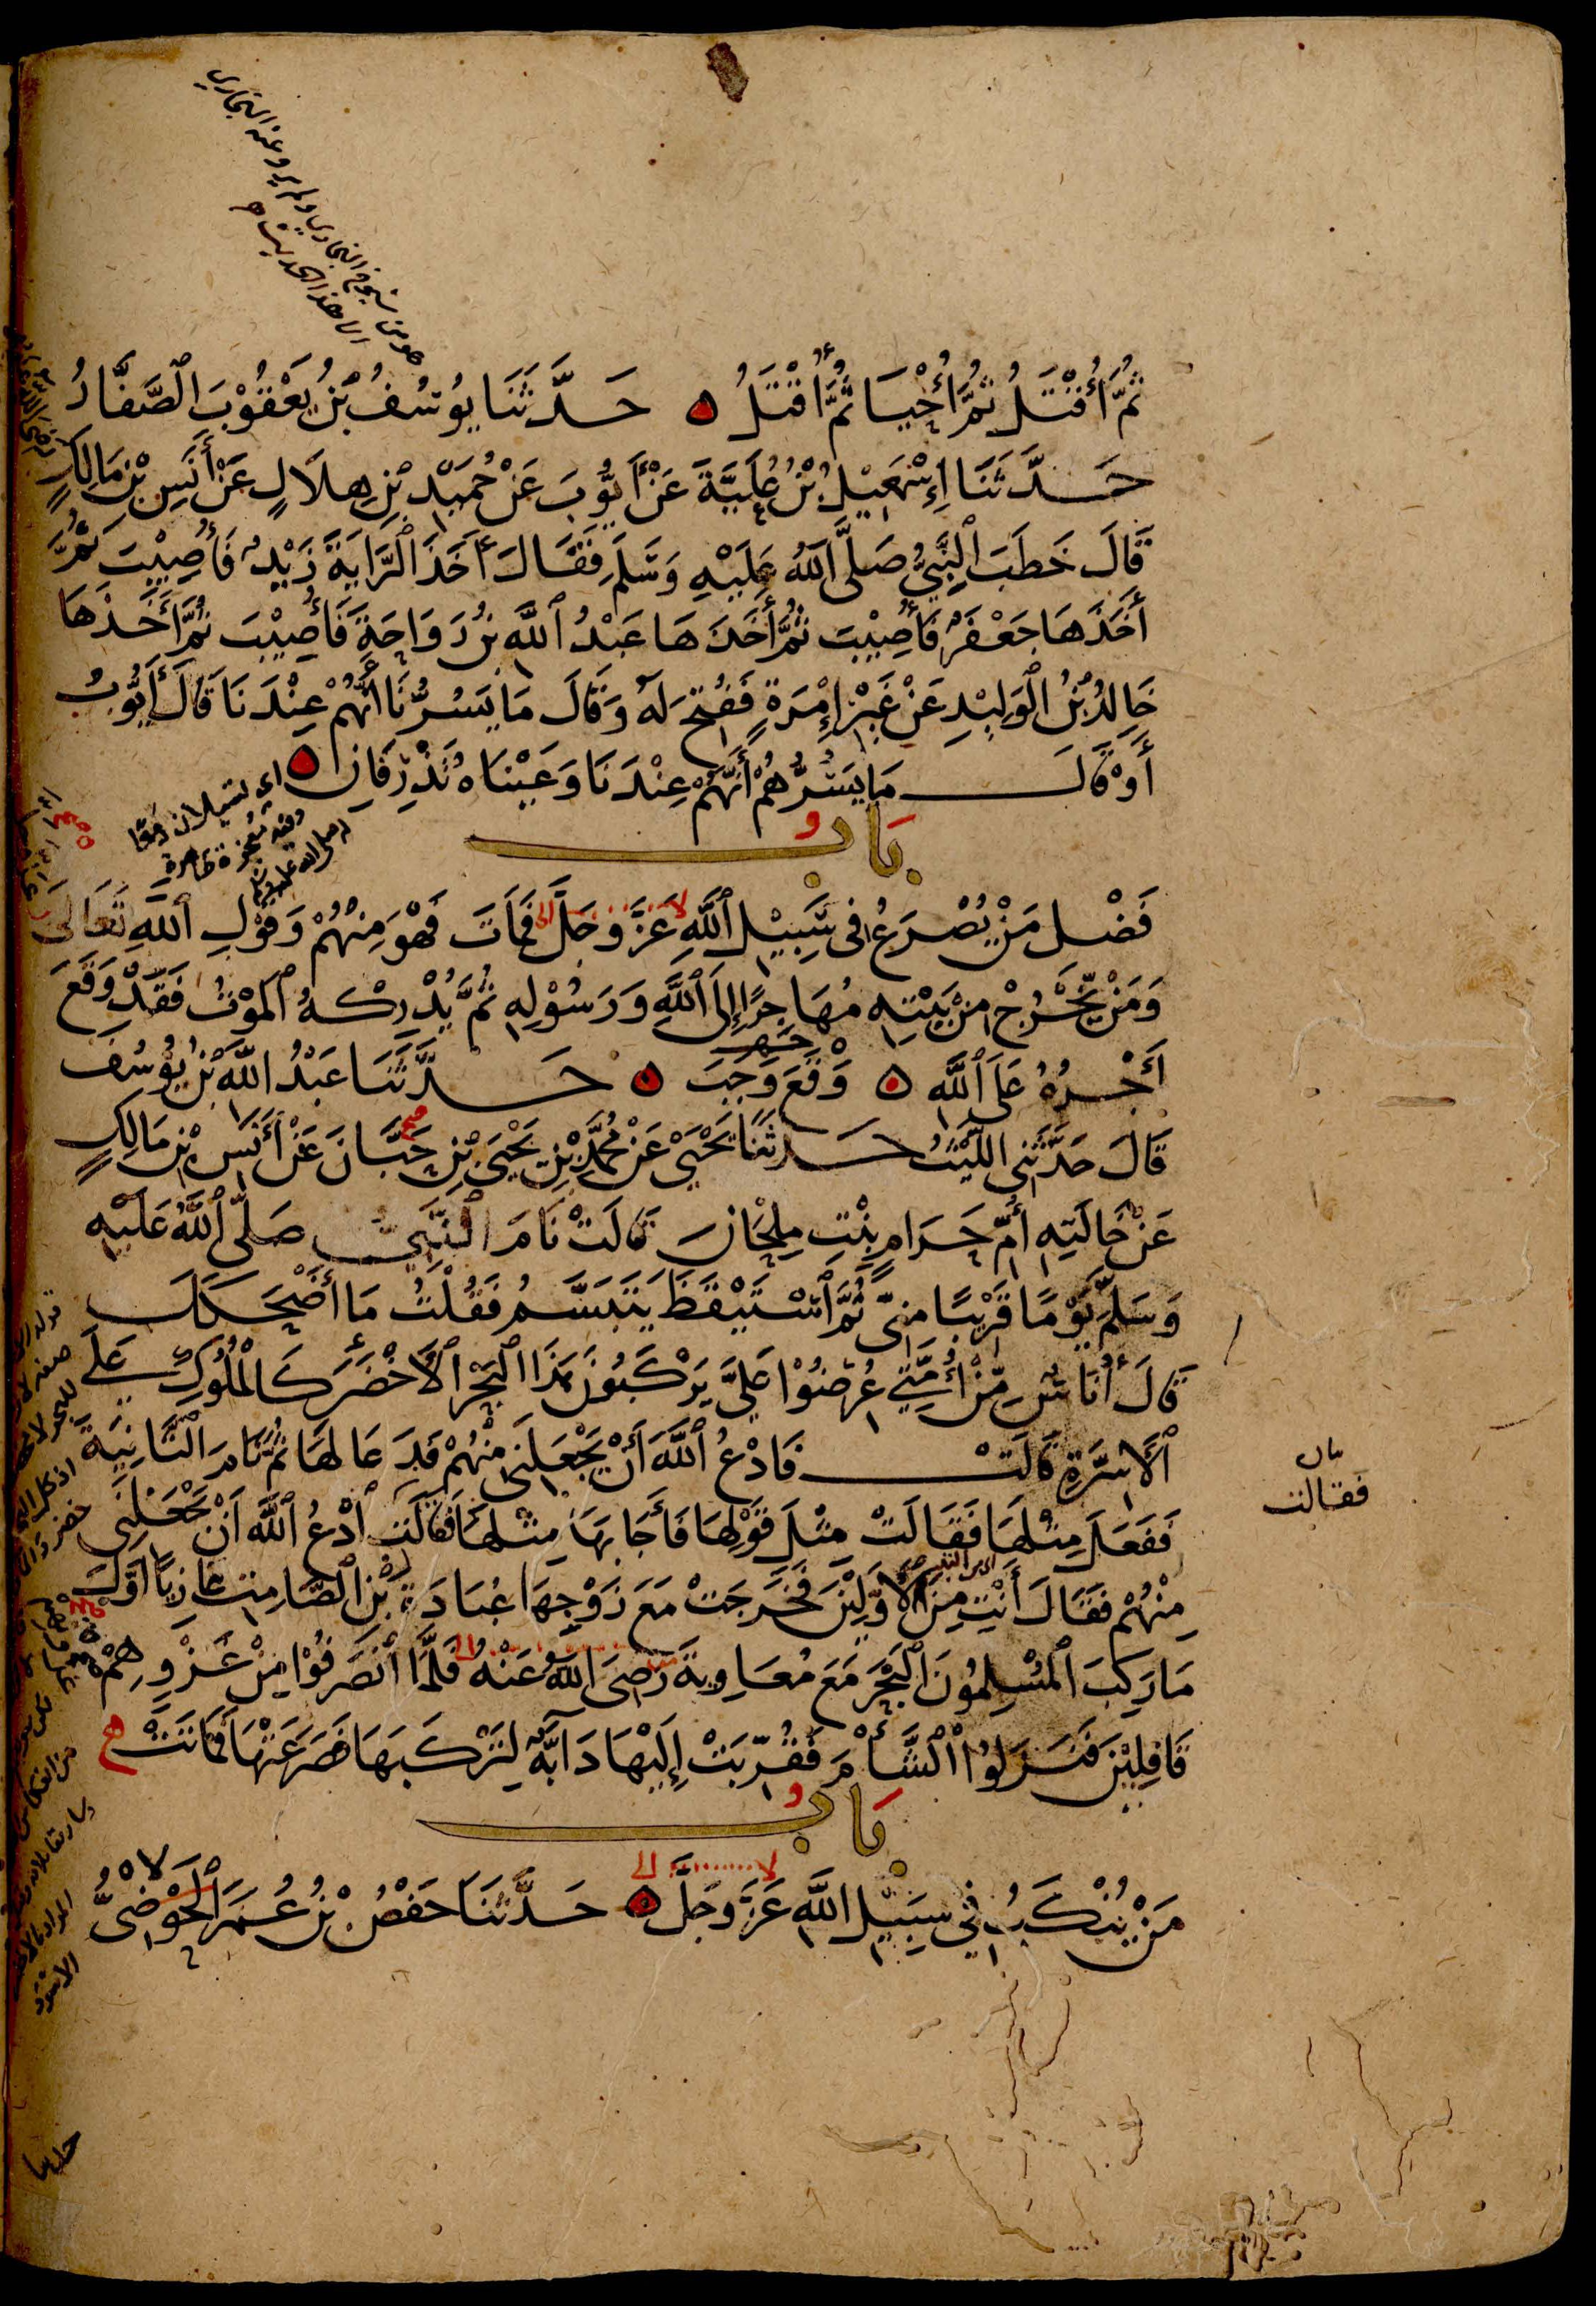 هو من شيوخ البخاري ولم يرو عنه البخاري
الا هذا الحديث
ثُمَّ أُقْتَلُ ثُمَّ أُحْيَا ثُمَّ أُقْتَلُ ۝ حَدَّثَنَا يُوسُفُ بْنُ يَعْقُوْبَ الصَّفَّارُ
حَدَّثَنَا إِسْمٰعِيْلُ بْنُ عُلَيَّةَ عَنْ أَيُّوْبَ عَنْ حُمَيْدِ بْنِ هِلَالٍ عَنْ أَنَسِ بْنِ مَالِكٍ
قَالَ خَطَبَ النَّبِيُّ صَلَّى اللّٰهُ عَلَيْهِ وَسَلَّمَ فَقَالَ أَخَذَ الرَّايَةَ زَيْدٌ فَأُصِيْبَ ثُمَّ
أَخَذَهَا جَعْفَرٌ فَأُصِيْبَ ثُمَّ أَخَذَهَا عَبْدُ اللّٰهِ بْنُ رَوَاحَةَ فَأُصِيْبَ ثُمَّ أَخَذَهَا
خَالِدُ بْنُ الْوَلِيْدِ عَنْ غَيْرِ إِمْرَةٍ فَفُتِحَ لَهُ وَقَالَ مَا يَسُرُّنَا أَنَّهُمْ عِنْدَنَا قَالَ أَيُّوْبُ
أَوْ قَالَ مَا يَسُرُّهُمْ أَنَّهُمْ عِنْدَنَا وَعَيْنَاهُ تَذْرِفَانِ ۝
اى تسيلان دمعا
وفيه معجزة ظاهرة
له صلى الله عليه وسلم
بَابُ
فَضْلِ مَنْ يُصْرَعُ فِي سَبِيْلِ اللّٰهِ عَزَّ وَجَلَّ فَمَاتَ فَهُوَ مِنْهُمْ وَقَوْلِ اللّٰهِ تَعَالَى
وَمَنْ يَخْرُجْ مِنْ بَيْتِهِ مُهَاجِرًا إِلَى اللّٰهِ وَرَسُوْلِهِ ثُمَّ يُدْرِكْهُ الْمَوْتُ فَقَدْ وَقَعَ
أَجْرُهُ عَلَى اللّٰهِ ۝ وَقَعَ وَجَبَ ۝ حَدَّثَنَا عَبْدُ اللّٰهِ بْنُ يُوْسُفَ
قَالَ حَدَّثَنِي اللَّيْثُ حَدَّثَنَا يَحْيَى عَنْ مُحَمَّدِ بْنِ يَحْيَى بْنِ حَبَّانَ عَنْ أَنَسِ بْنِ مَالِكٍ
عَنْ خَالَتِهِ أُمِّ حَرَامٍ بِنْتِ مِلْحَانَ قَالَتْ نَامَ النَّبِيُّ صَلَّى اللّٰهُ عَلَيْهِ
وَسَلَّمَ يَوْمًا قَرِيْبًا مِنِّي ثُمَّ اسْتَيْقَظَ يَتَبَسَّمُ فَقُلْتُ مَا أَضْحَكَكَ
قَالَ أُنَاسٌ مِنْ أُمَّتِي عُرِضُوْا عَلَيَّ يَرْكَبُوْنَ هَذَا الْبَحْرَ الْأَخْضَرَ كَالْمُلُوْكِ عَلَى
الْأَسِرَّةِ قَالَتْ فَادْعُ اللّٰهَ أَنْ يَجْعَلَنِي مِنْهُمْ فَدَعَا لَهَا ثُمَّ نَامَ الثَّانِيَةَ
فَفَعَلَ مِثْلَهَا فَقَالَتْ مِثْلَ قَوْلِهَا فَأَجَابَهَا مِثْلَهَا فَقَالَتِ ادْعُ اللّٰهَ أَنْ يَجْعَلَنِي
فقالت
مِنْهُمْ فَقَالَ أَنْتِ مِنَ الْأَوَّلِيْنَ فَخَرَجَتْ مَعَ زَوْجِهَا عُبَادَةَ بْنِ الصَّامِتِ غَازِيًا أَوَّلَ
مَا رَكِبَ الْمُسْلِمُوْنَ الْبَحْرَ مَعَ مُعَاوِيَةَ رَضِيَ اللّٰهُ عَنْهُ فَلَمَّا انْصَرَفُوْا مِنْ غَزْوِهِمْ
قَافِلِيْنَ فَنَزَلُوا الشَّأْمَ فَقُرِّبَتْ إِلَيْهَا دَابَّةٌ لِتَرْكَبَهَا فَصَرَعَتْهَا فَمَاتَتْ
بَابُ
مَنْ يُنْكَبُ فِي سَبِيْلِ اللّٰهِ عَزَّ وَجَلَّ ۝ حَدَّثَنَا حَفْصُ بْنُ عُمَرَ الْحَوْضِيُّ